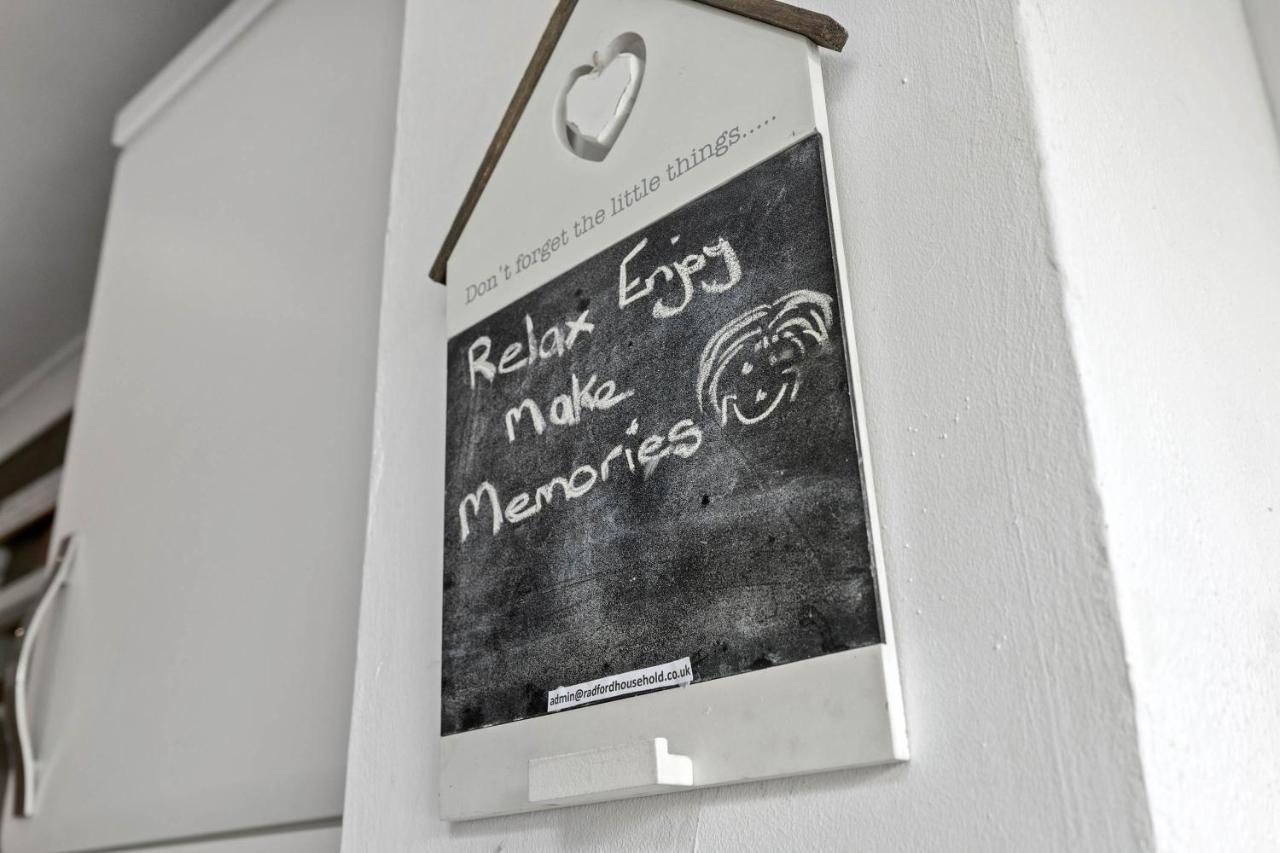 Don't forget the little things.....
Relax Enjoy
make
Memories
admin@radfordhousehold.co.uk